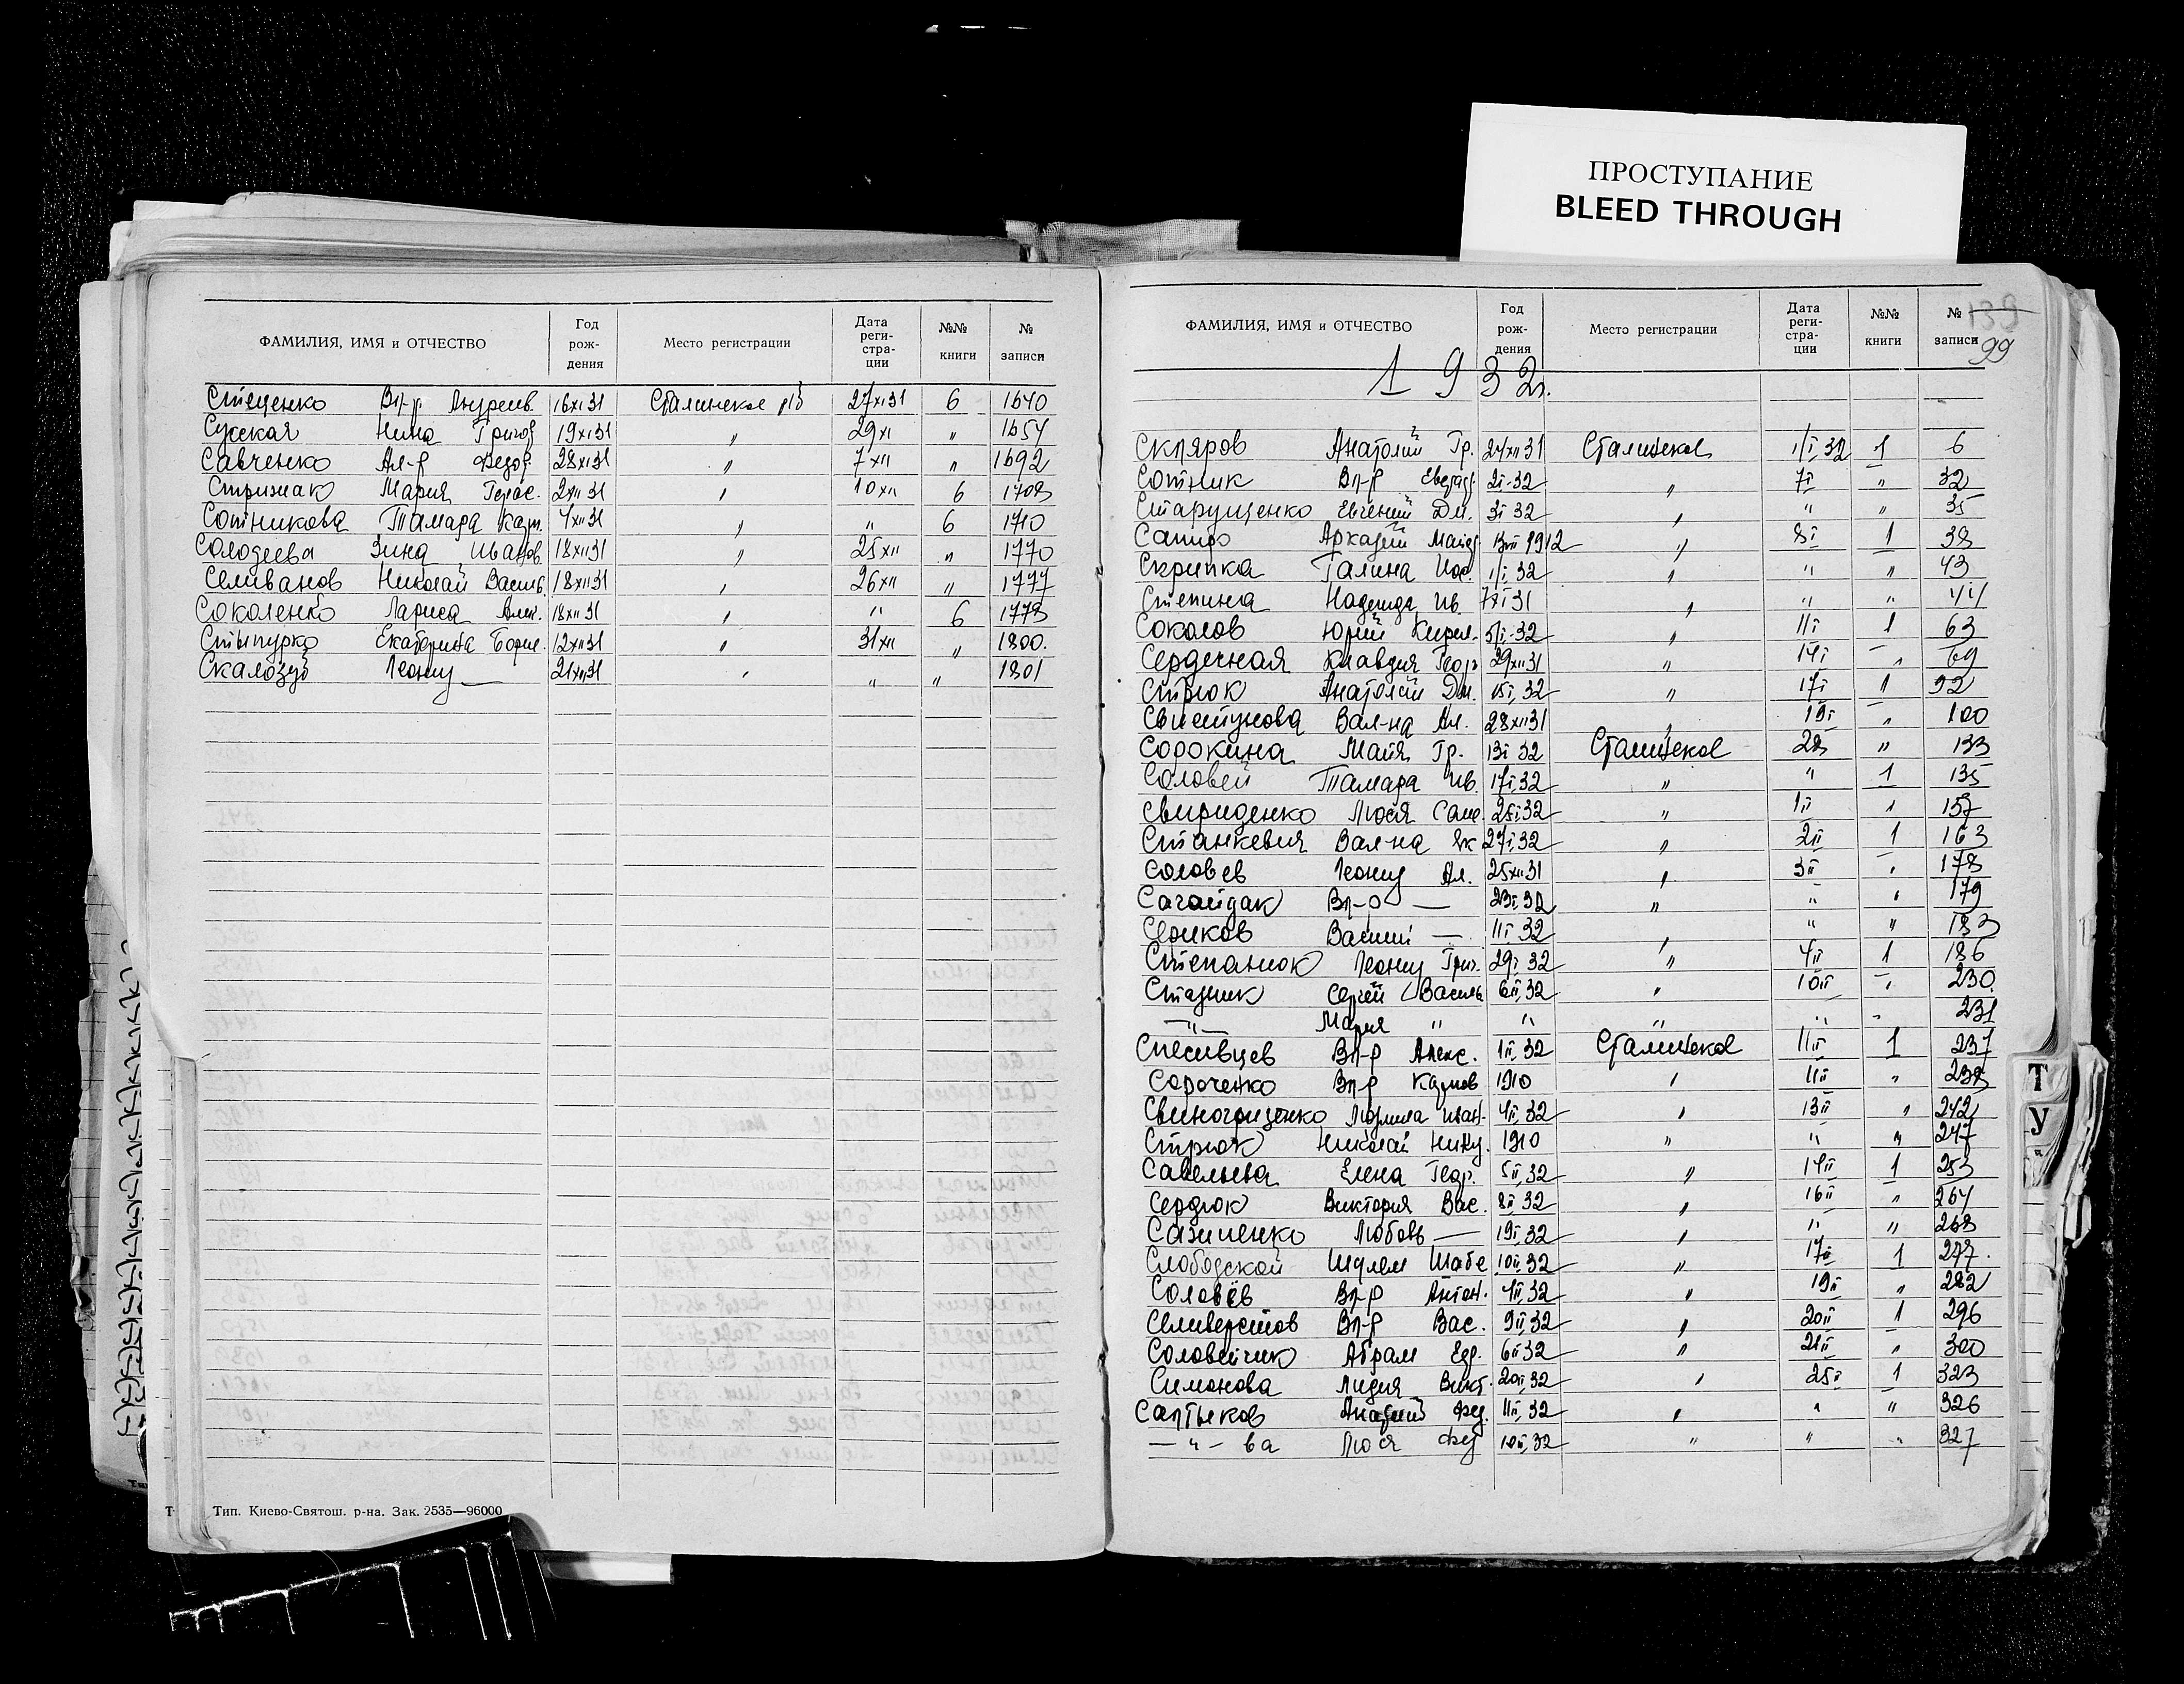 ПРОСТУПАНИЕ
BLEED THROUGH
ФАМИЛИЯ, ИМЯ и ОТЧЕСТВО Год рож- дения Место регистрации Дата реги- стра- ции №№ книги № записи
Стеценко Вл-р Андреев. 16 XI 31 Сталинское р/б 27 XI 31 6 1640
Сусская Нина Григор 19 XI 31 " 29 XI " 1654
Савченко Ал-р Федор. 28 XI 31 " 7 XII " 1692
Стрижак Мария Герас. 2 XII 31 " 10 XII 6 1708
Сотникова Тамара 4 XII 31 " " 6 1710
Солодеева Зина Иванов 18 XII 31 " 25 XII " 1770
Селиванов Николай Василь. 18 XII 31 " 26 XII " 1777
Соколенко Лариса Алек. 18 XII 31 " " 6 1778
Екатерина Борис. 12 XII 31 " 31 XII " 1800.
Скалозуб Леонид — 21 XII 31 " " " 1801
Тип. Киево-Святош. р-на. Зак. 2535—96000
139
99
ФАМИЛИЯ, ИМЯ и ОТЧЕСТВО Год рож- дения Место регистрации Дата реги- стра- ции №№ книги № записи
1932г.
Скляров Анатолий Гр. 24 XII 31 Сталинское 1/I 32 1 6
Сотник Вл-р 2 I-32 " 7 I " 32
Старущенко Евгений Дм. 3 I 32 " " " 35
Сапиро Аркадий 1912 " 8 I 1 38
Скрипка Галина Иос. 1/I 32 " " " 43
Степина Надежда Ив. 7 XI 31 " " " 44
Соколов Юрий Кирил. 5/I-32 " 11 I 1 63
Сердечная Клавдия Георг 29 XII 31 " 14 I " 69
Стрюк Анатолий Дм. 15 I, 32 " 17 I 1 92
Свистунова Вал-на Ал. 28 XII 31 " 19 I " 100
Сорокина Майя Гр. 13 I 32 Сталинское 28 " 133
Соловей Тамара Ив. 17 I, 32 " " 1 135
Свириденко Люся Сам. 25 I 32 " 1 II 1 157
Станкевич Вал-на Як 27 I, 32 " 2 II 1 163
Соловьев Леонид Ал. 25 XII 31 " 3 II " 178
Сагайдак Вл-р — 23 I, 32 " " " 179
Сериков Василий — 11 I, 32 " " " 183
Степанюк Леонид Григ. 29 I, 32 " 4 II 1 186
Стадник Сергей Василь 6 II, 32 " 10 II " 230.
—"— Мария " " " " " 231
Спесивцев Вл-р Алекс. 1 II, 32 Сталинское 11 II 1 237
Сороченко Вл-р Карпов 1910 " 11 II " 238
Людмила Иван. 4 II, 32 " 13 II " 242
Стрюк Николай 1910 " " " 247
Савельева Елена Геор. 5 II, 32 " 14 II 1 253
Сердюк Виктория Вас. 8 II, 32 " 16 II " 264
Любовь — 19 I, 32 " " " 268
Слободской Шулем 10 II, 32 " 17 II 1 277.
Соловьёв Вл-р Антон. 4 II, 32 " 19 II " 282
Селиверстов Вл-р Вас. 9 II, 32 " 20 II 1 296
Соловейчик Абрам 6 II 32 " 21 II " 300
Симонова Лидия Викт. 20 II, 32 " 25 II 1 323
Салтыков Фед. 11 II, 32 " " " 326
—"— ва Люся Фед 10 II, 32 " " " 327
Т
У